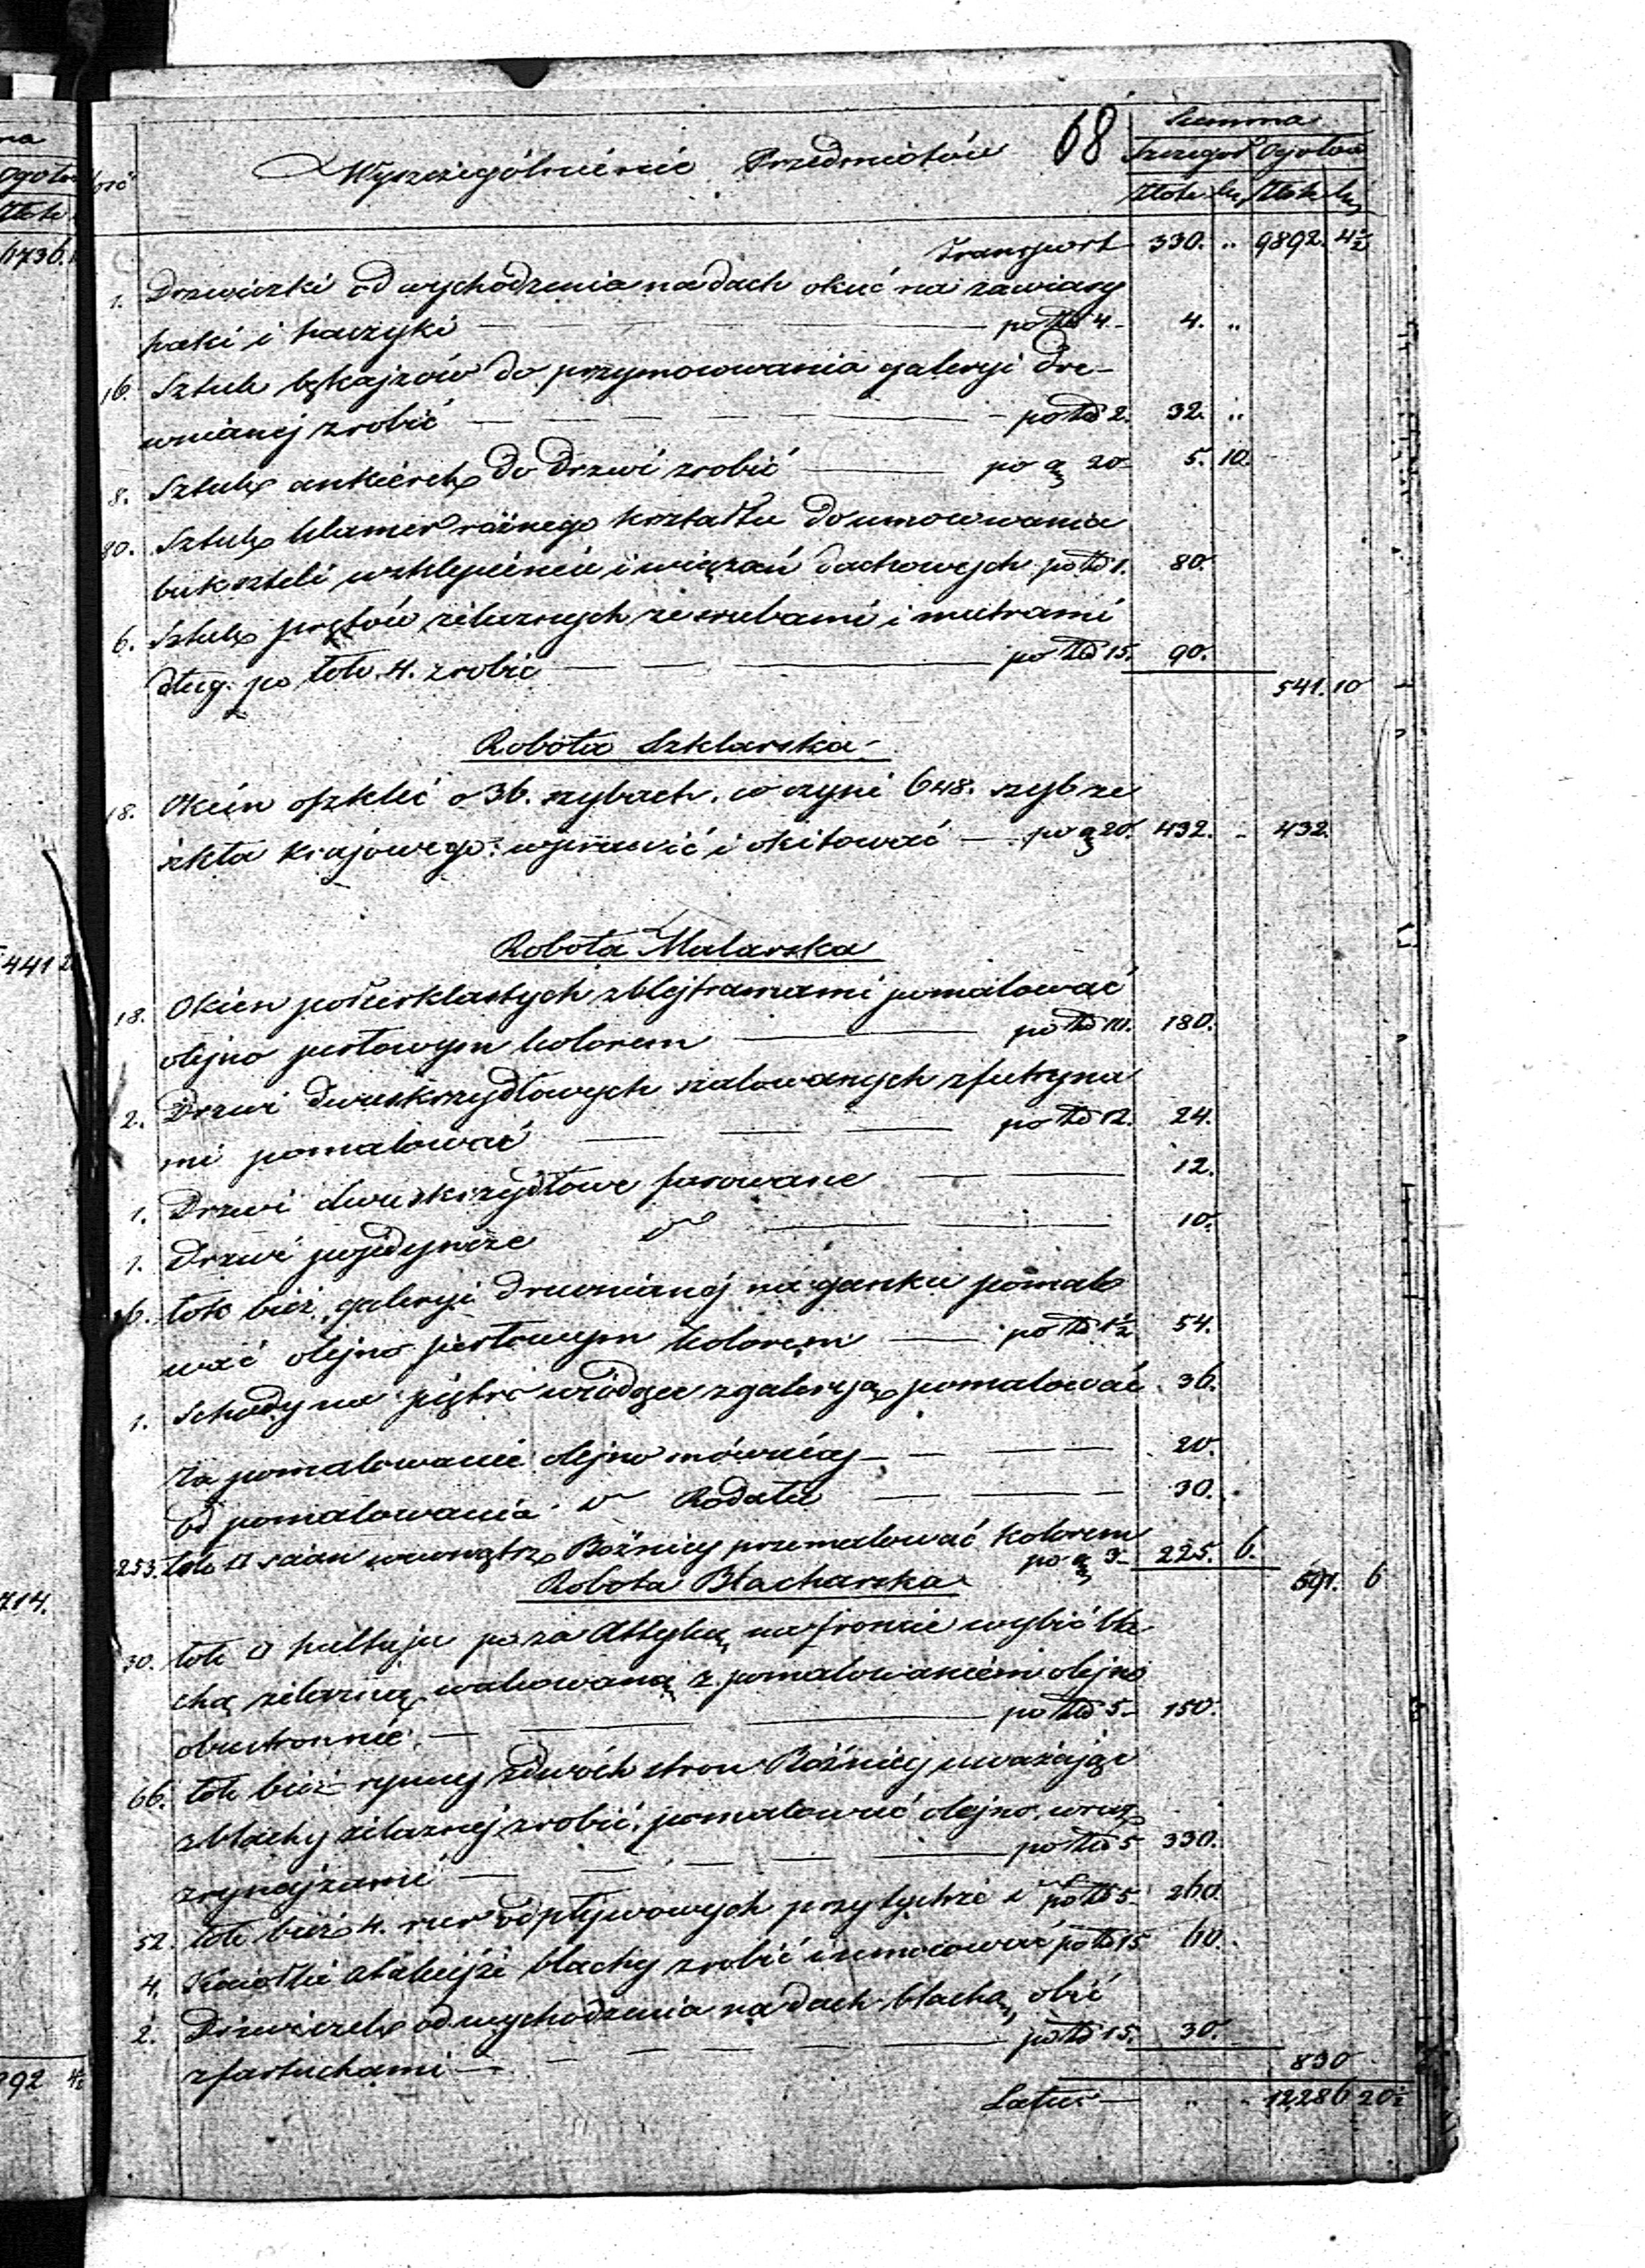 68
Summa
Wyszczególnienie Przedmiotów
Szczegół Ogólna
Złote gr Złote gr
Transport 330. " 9892. 4½
1. Drzwiczki od wychodzenia na dach okuć na zawiasy
haki i haczyki — po Złp 4 4. "
16. Sztuk bękajzów do przymocowania galeryi dre-
wnianej zrobić — po Złp 2. 32. "
8. Sztuk ankierek do drzwi zrobić — po g 20 5. 10.
80. Sztuk klamer różnego kształtu do umocowania
bukszteli w sklepieniu i wiązań dachowych po Złp 1. 80.
6. Sztuk prętów żelaznych ze srubami i mutrami
dług. po łok. 4. zrobić — po Złp 15. 90.
541. 10
Robota Szklarska
18. Okien oszklić o 36. szybach, co czyni 648. szyb ze
szkła krajowego wprawić i okitować — po g 20. 432. - 432.
Robota Malarska
18. Okien z blejtramami pomalować
olejno perłowym kolorem — po Złp 10. 180.
2. Drzwi dwuskrzydłowych szalowanych z futryna
mi pomalować — po Złp 12. 24.
1. Drzwi dwuskrzydłowe fasowane — 12.
1. Drzwi pojedyncze do — 10.
36. łok bież. galeryi drewnianej na ganku pomalo
wać olejno perłowym kolorem — po Złp 1½ 54.
1. Schody na piętro wiodące z galeryą pomalować 36.
Za pomalowanie olejno mównicy — 20.
Od pomalowania do Rodału — 30.
łok □ ścian wewnątrz Bóżnicy przemalować kolorem
po g 3 225. 6.
591. 6
Robota Blacharska
30. łok □ pułtapu po za Attyką na froncie wybić bla
chą żelazną walcowaną z pomalowaniem olejno
obustronnie. — po Złp 5 150.
66. łok bież rynny z dwóch stron Bóżnicy uważając
z blachy żelaznej zrobić, pomalować olejno, wraz
z rynajzami — po Złp 5 330.
52. łok bież 4. rur odpływowych przy tychże do po Złp 5 260.
4. Kociołki blachy zrobić i umocować po Złp 15 60.
2. Drzwiczek od wychodzenia na dach blachą obić
z fartuchami — po Złp 15. 30.
830
Latus — " " 12286 20½